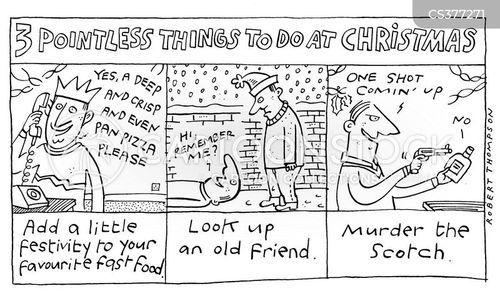 CS377271
3 POINTLESS THINGS TO DO AT CHRISTMAS
YES, A DEEP
AND CRISP
AND EVEN
PAN PIZZA
PLEASE
HI,
REMEMBER
ME?
ONE SHOT
COMIN' UP
NO
Add a little
festivity to your
favourite fast food.
Look up
an old friend.
Murder the
Scotch.
ROBERT THOMPSON